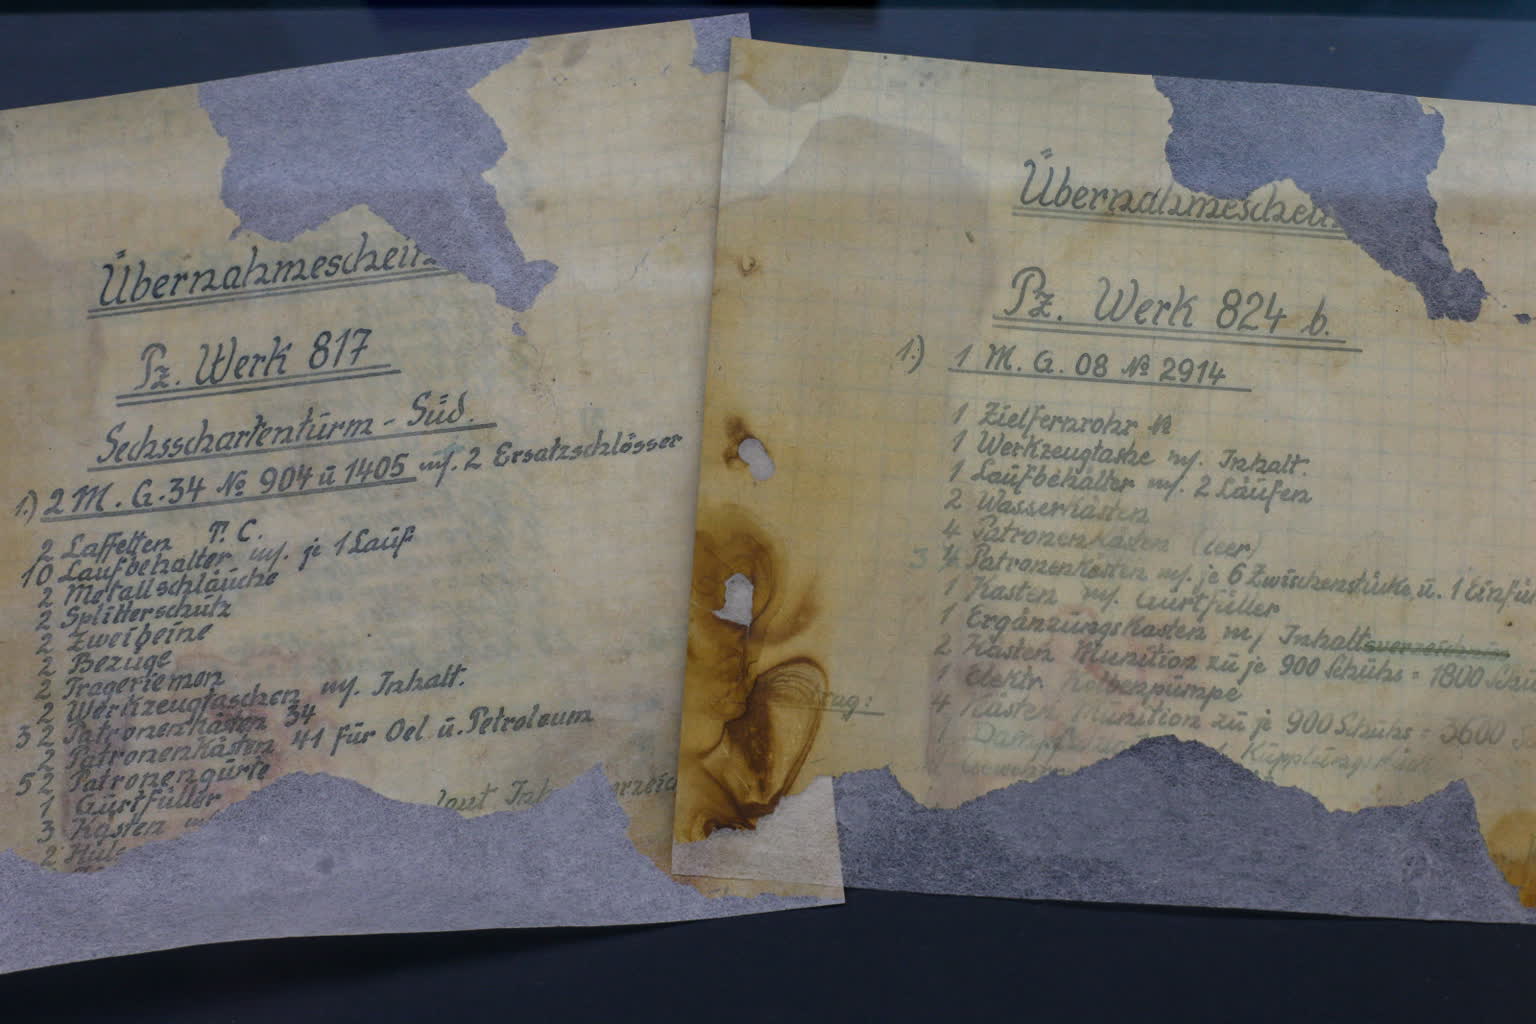 Übernahmeschein
Pz. Werk 817
Sechsschartenturm - Süd.
1.) 2 M. G. 34 № 904 u 1405 m/. 2 Ersatzschlösser
2 Laffetten P. C.
10 Laufbehälter m/. je 1 Lauf
2 Metallschläuche
2 Splitterschutz
2 Zweibeine
2 Bezüge
2 Trageriemen
2 Werkzeugtaschen m/. Inhalt.
3 2 Patronenkästen 34
2 Patronenkästen 41 für Oel u. Petroleum
5 2 Patronengurte
1 Gurtfüller
3 Kasten laut
2
Übernahmeschein
Pz. Werk 824 b.
1.) 1 M. G. 08 № 2914
1 Zielfernrohr №
1 Werkzeugtashe m/. Inhalt.
1 Laufbehälter m/. 2 Läufen
2 Wasserkästen
4 Patronenkästen (leer)
3 4 Patronenkästen m/. je 6 Zwischenstücke u. 1
1 Kasten m/. Gurtfüller
1 Ergänzungskasten m/ Inhaltsverzeichnis
2 Kästen Munition zu je 900 Schuhs = 1800
1 Elektr. Kolbenpumpe
4 Kästen Munition zu je 900 Schuhs = 3600
1 Kupplungsstück